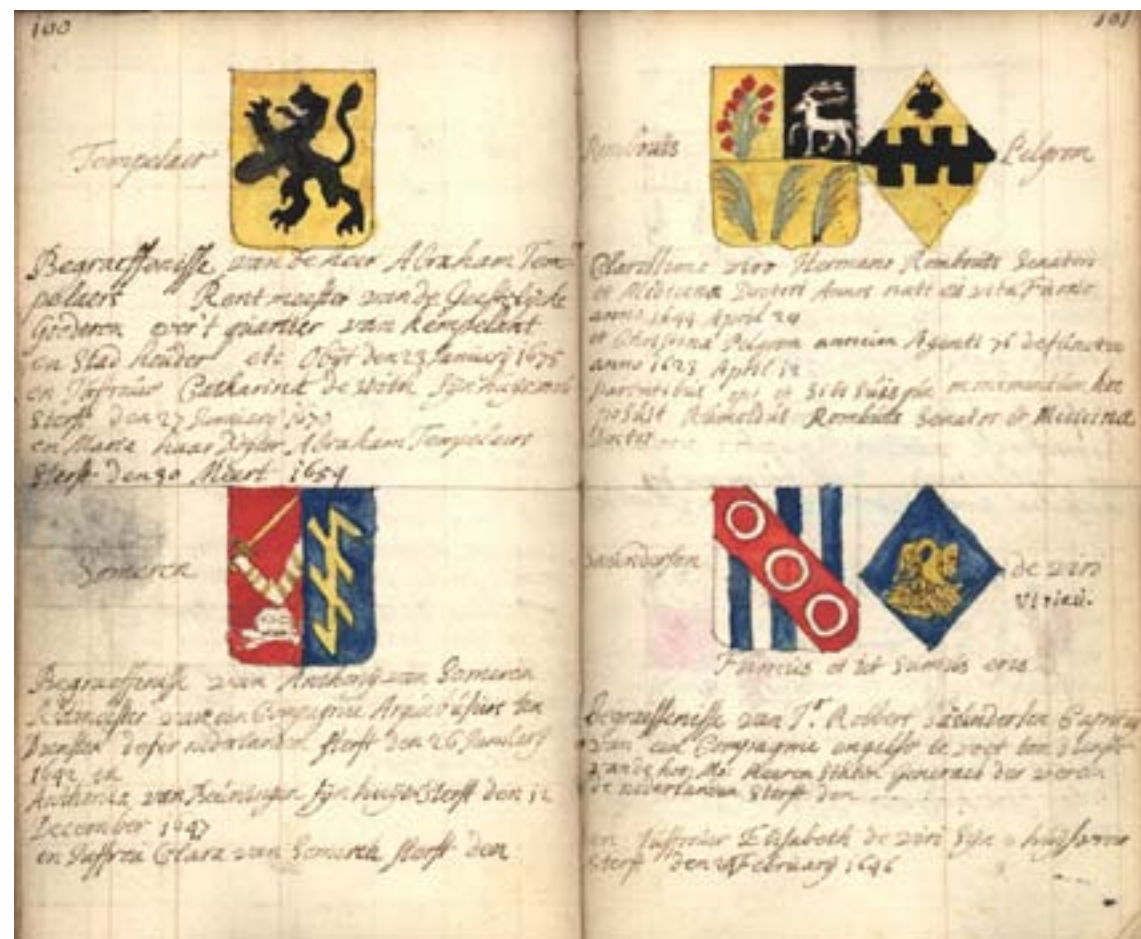 100
Tempelaer
Begraeffenisse van de heer Abraham Tem-
pelaers Rentmeester van de Geestelijcke
Goederen over't quartier van Kempelant
en Stad houder etc Obijt den 23 January 1675
en Jofrouw Catharina de With Sijn huijsvrou
Sterft den 27 January
en Maria haar Dogter Abraham Tempelaers
Sterft den 30 Meert 1659
Someren
Begraeffenisse van Anthonij van Someren
Ritmeester van een Compagnie Arquebusiers ten
Diensten deser nederlanden sterft den 26 January
1642 en
Anthonia van Beuningen Sijn huijsv Sterft den 12
December 1647
en Juffrou Clara van Someren sterft den
101
Rombouts
Pelgrom
Clarissimo viro Hermano Rombouts Senatori
et Medicina Doctori
anno 1644 April 24
et Christina Pelgrom 76 defuncta
anno 1623 April 12
parentibus et Sibi Suisque monumentum hoc
posuit Rombouts Senator & Medicina
Doctor
de viri
Vtrieu.
Fumus et ut Sumus eris
Begraeffenisse van Jr. Robbert Saunderson Capiteyn
van een Compagnie engelse te voet ten dienste
van de hoo: Mo: Heeren Staten Generael der vereen
de nederlanden Sterft den
en Juffrouw Elisabeth de viri Sijn huijsvrou
sterft den February 1646